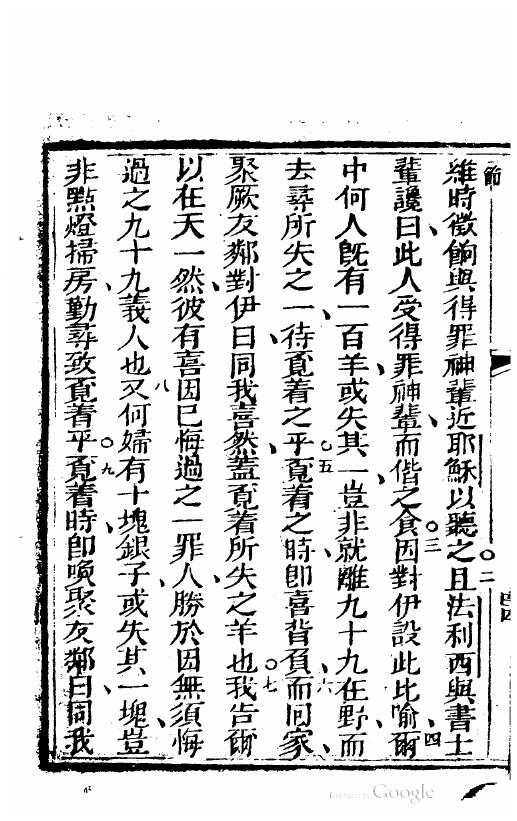 節
維時徵餉與得罪神輩近耶穌以聽之○二且法利西與書士
輩讒曰此人受得罪神輩而偕之食○三因對伊設此比喻四爾
中何人既有一百羊或失其一豈非就離九十九在野而
去尋所失之一待覓着之乎○五覓着之時即喜背負六而囘家○七
聚厥友鄰對伊曰同我喜然蓋覓着所失之羊也我告爾
以在天一然彼有喜因已悔過之一罪人勝於因無須悔
過之九十九義人也八又何婦有十塊銀子或失其一塊豈
非點燈掃房勤尋致覓着乎○九覓着時即喚聚友鄰曰同我
Google